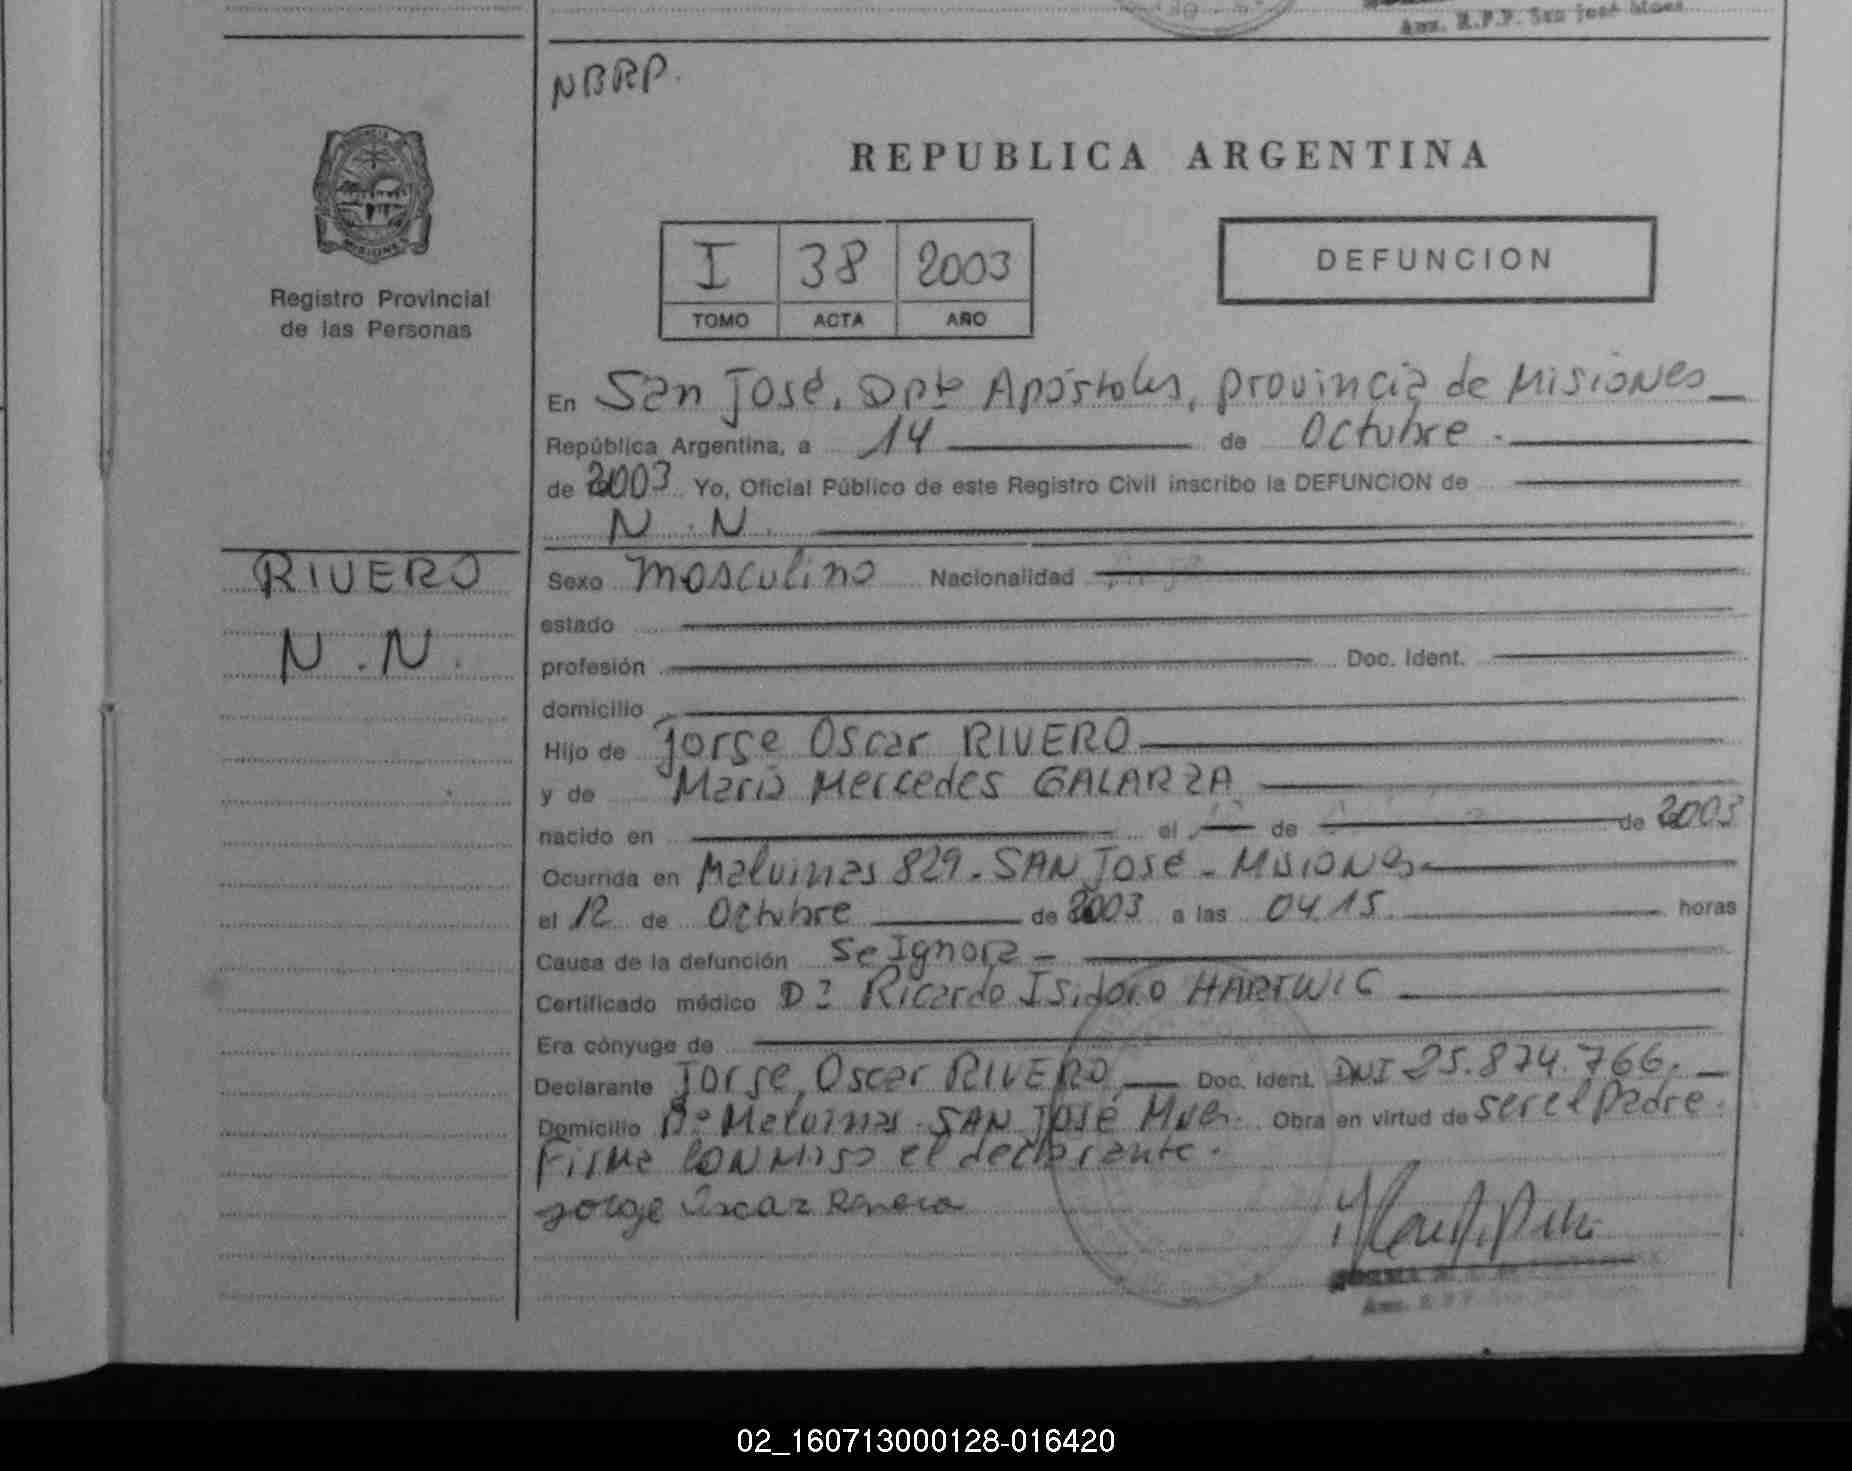 Aux. R.P.P. San José Mnes
NBRP.
REPUBLICA ARGENTINA
I 38 2003
TOMO ACTA AÑO
DEFUNCION
MISIONES
Registro Provincial
de las Personas
En San José, Dpto Apóstoles, provincia de Misiones
República Argentina, a 14 de Octubre.
de 2003 Yo, Oficial Público de este Registro Civil inscribo la DEFUNCION de
N.N.
RIVERO
N.N.
Sexo masculino Nacionalidad
estado
profesión Doc. Ident.
domicilio
Hijo de Jorge Oscar RIVERO
y de Maria Mercedes GALARZA
nacido en el de de 2003
Ocurrida en Malvinas 829. SAN José - Misiones
el 12 de Octubre de 2003 a las 04.15 horas
Causa de la defunción Se Ignora -
Certificado médico Dr Ricardo Isidoro HARTWIG
Era cónyuge de
Declarante Jorge Oscar RIVERO Doc. Ident. DNI 25.874.766.
Domicilio Bº Malvinas. SAN José Mnes. Obra en virtud de ser el Padre.
Firma CONMigo el declarante.
Jorge Oscar Rivero
Aux. R.P.P.
02_160713000128-016420